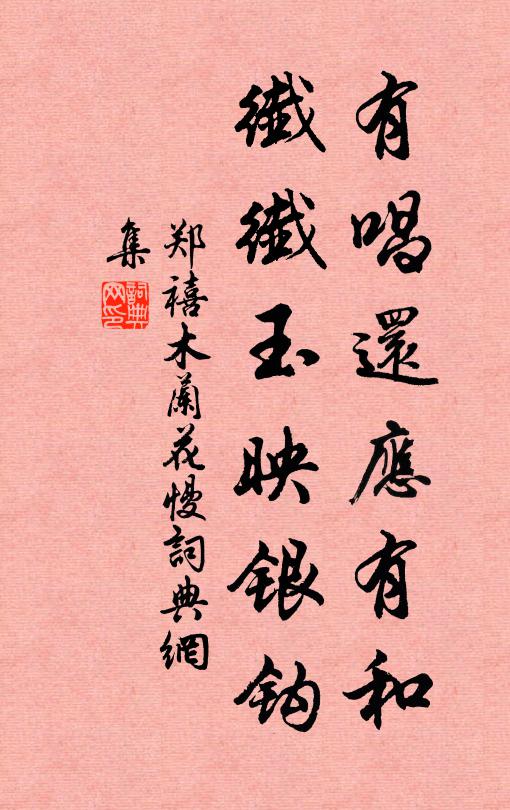 有唱還應有和
纖纖玉映銀鈎
郑禧木蘭花慢詞典網
集
詞典網印